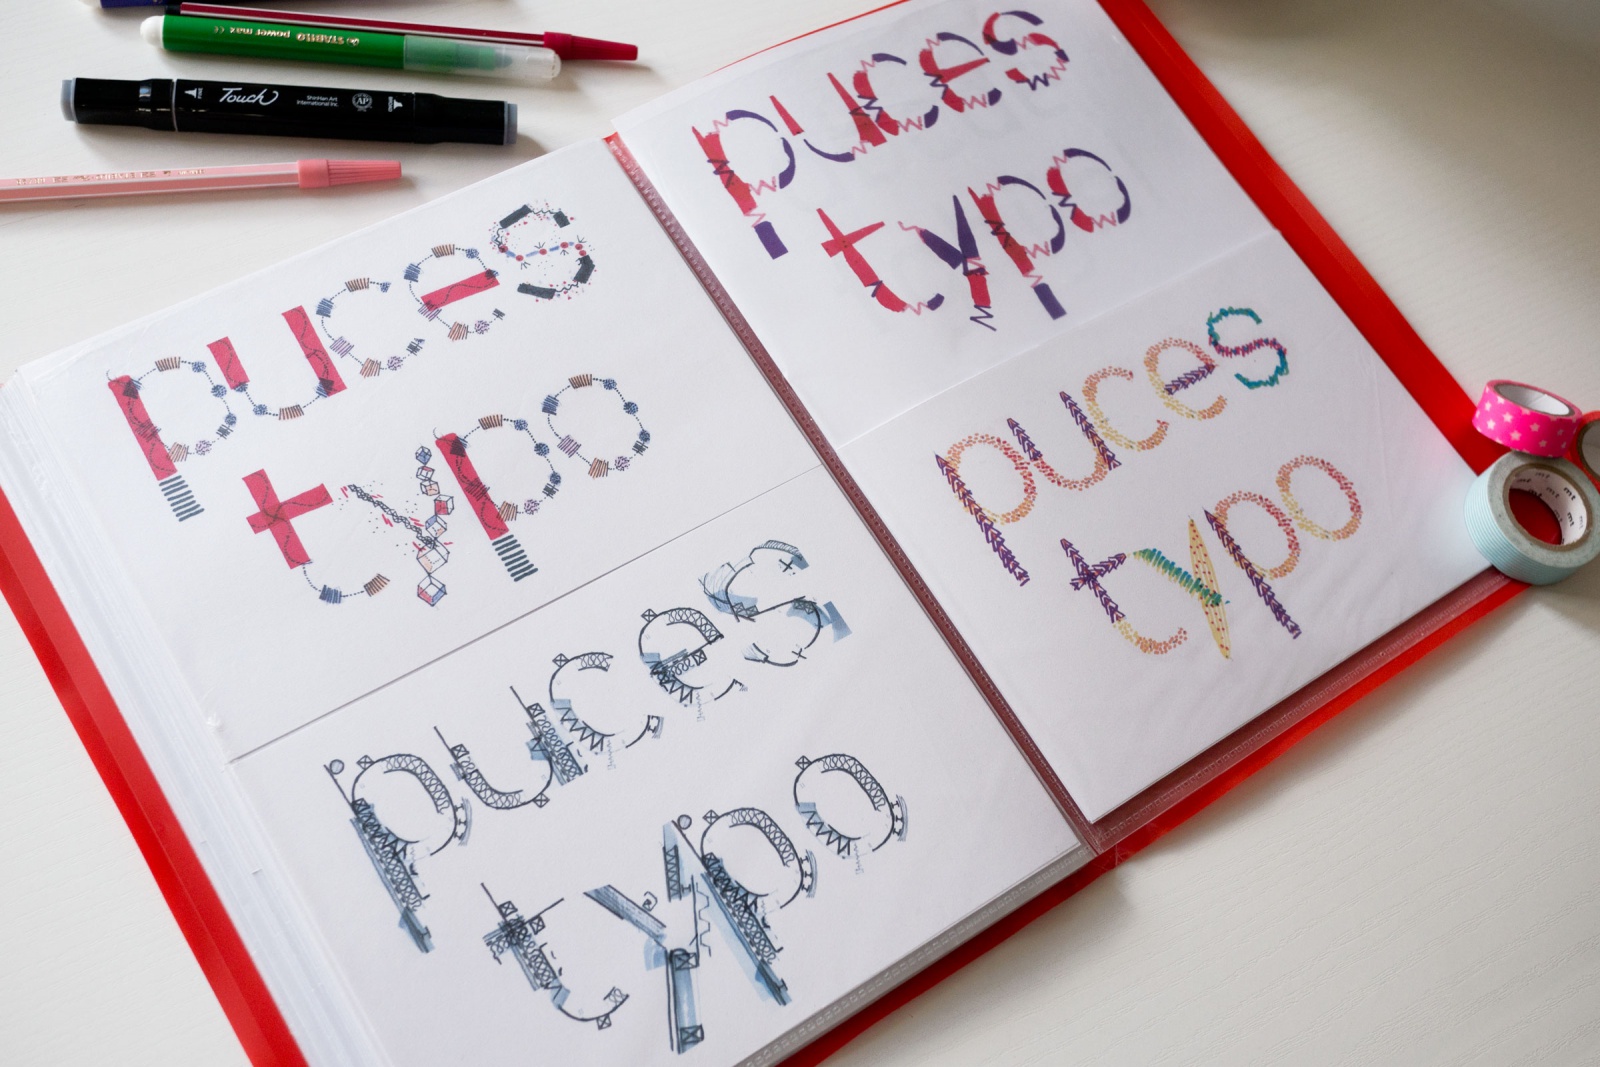 STABILO power max
Touch
FINE
ShinHan Art
International Inc
AP
puces
typo
puces
typo
puces
typo
puces
typo
mt mt mt